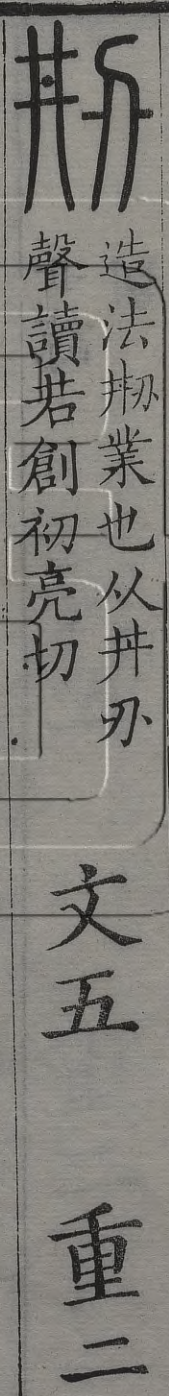 刱
造法刱業也从井刅
聲讀若創初亮切
文五 重二